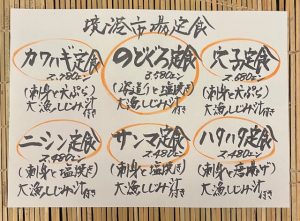 境港市場定食
カワハギ定食
2,980円
(刺身と天ぷら)
大漁しじみ汁付き
のどぐろ定食
3,980円
(姿造りと塩焼き)
大漁しじみ汁付き
穴子定食
2,980円
(刺身と天ぷら)
大漁しじみ汁付き
ニシン定食
2,480円
(刺身と塩焼き)
大漁しじみ汁付き
サンマ定食
2,480円
(刺身と塩焼き)
大漁しじみ汁付き
ハタハタ定食
2,480円
(刺身と唐揚げ)
大漁しじみ汁付き